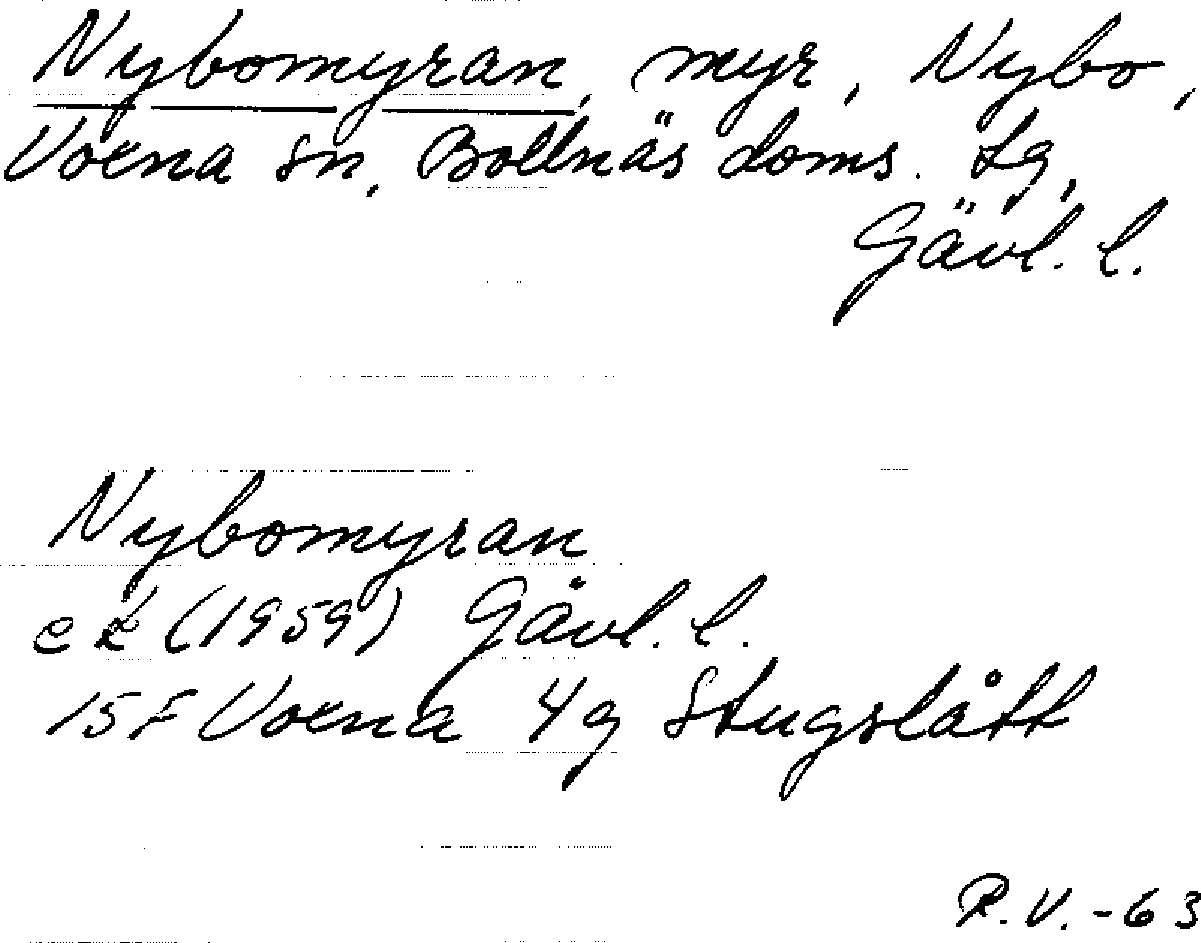 Nybomyran, myr, Nybo,
Voxna sn, Bollnäs doms. tg,
Gävl. l.
Nybomyran
ek (1959) Gävl. l.
15F Voxna 4g Stugslått
R.V. -63